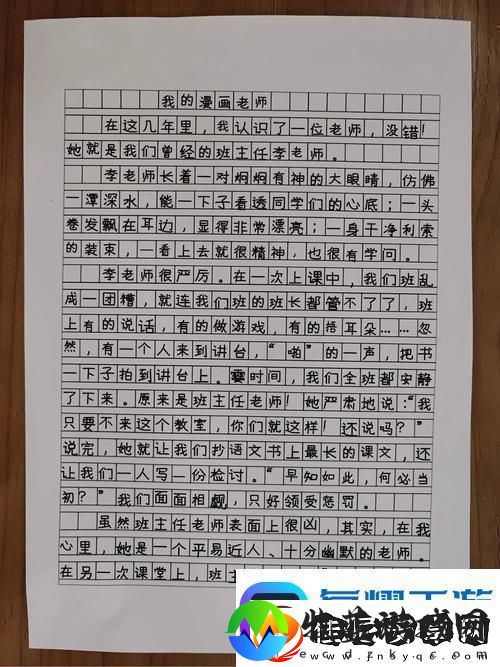 我的漫画老师
在这几年里，我认识了一位老师，没错！
她就是我们曾经的班主任李老师。
李老师长着一对炯炯有神的大眼睛，仿佛
一潭深水，能一下子看透同学们的心底；一头
卷发飘在耳边，显得非常漂亮；一身干净利索
的装束，一看上去就很精神，也很有学问。
李老师很严厉。在一次上课中，我们班乱
成一团糟，就连我们班的班长都管不了了，班
上有的说话，有的做游戏，有的捂耳朵……忽
然，有一个人来到讲台，“啪”的一声，把书
一下子拍到讲台上。霎时间，我们全班都安静
了下来。原来是班主任老师！她严肃地说：“我
只要不来这个教室，你们就这样！还说吗？”
说完，她就让我们抄语文书上最长的课文，还
让我们一人写一份检讨。“早知如此，何必当
初？”我们面面相觑，只好领受惩罚。
虽然班主任老师表面上很凶，其实，在我
心里，她是一个平易近人、十分幽默的老师。
在另一次课堂上，班主
www.znkyqc.com